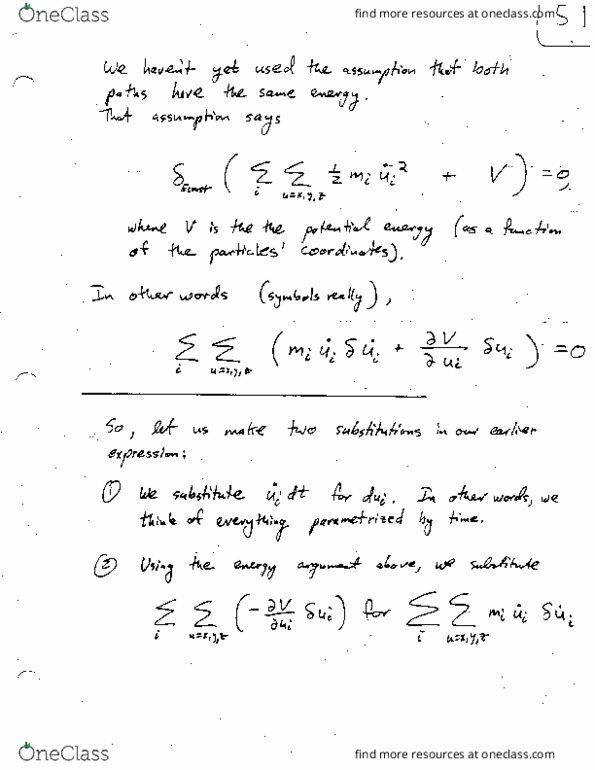 OneClass
find more resources at oneclass.com
51
We haven't yet used the assumption that both
paths have the same energy.
That assumption says
δ ( Σ_i Σ_{u=x,y,z} ½ m_i u̇_i² + V ) = 0,
where V is the the potential energy (as a function
of the particles' coordinates).
In other words (symbols really),
Σ_i Σ_{u=x,y,z} ( m_i u̇_i δu̇_i + ∂V/∂u_i δu_i ) = 0
So, let us make two substitutions in our earlier
expression:
① We substitute u̇_i dt for du_i. In other words, we
think of everything parametrized by time.
② Using the energy argument above, we substitute
Σ_i Σ_{u=x,y,z} ( - ∂V/∂u_i δu_i ) for Σ_i Σ_{u=x,y,z} m_i u̇_i δu̇_i
OneClass
find more resources at oneclass.com